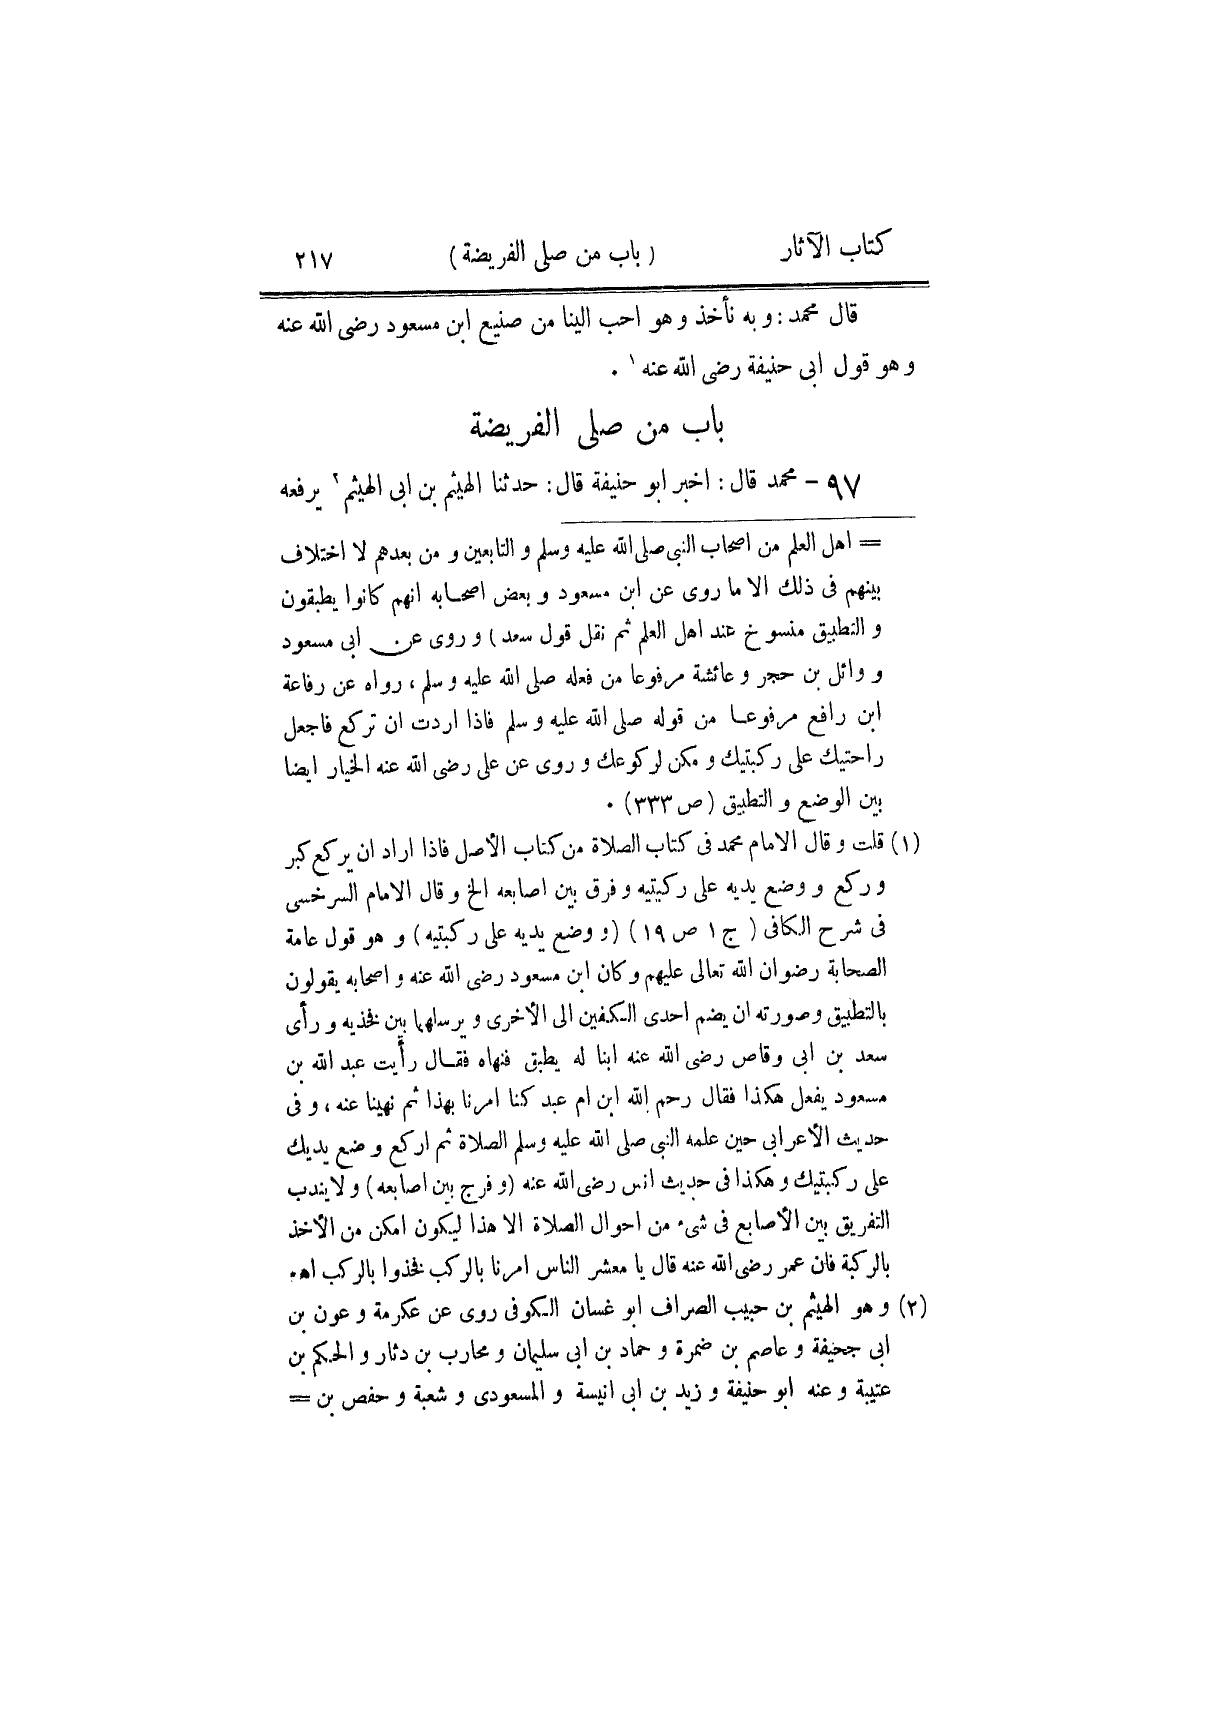 كتاب الآثار ( باب من صلى الفريضة ) ٢١٧
قال محمد : و به نأخذ و هو احب الينا من صنيع ابن مسعود رضى الله عنه
و هو قول ابى حنيفة رضى الله عنه ١ .
باب من صلى الفريضة
٩٧ – محمد قال : اخبر ابو حنيفة قال : حدثنا الهيثم بن ابى الهيثم ٢ يرفعه
= اهل العلم من اصحاب النبى صلى الله عليه وسلم و التابعين و من بعدهم لا اختلاف
بينهم فى ذلك الا ما روى عن ابن مسعود و بعض اصحابه انهم كانوا يطبقون
و التطبيق منسوخ عند اهل العلم ثم نقل قول سعد ) و روى عن ابى مسعود
و وائل بن حجر و عائشة مرفوعا من فعله صلى الله عليه و سلم ، رواه عن رفاعة
ابن رافع مرفوعا من قوله صلى الله عليه و سلم فاذا اردت ان تركع فاجعل
راحتيك على ركبتيك و مكن لركوعك و روى عن على رضى الله عنه الخيار ايضا
بين الوضع و التطبيق ( ص ٣٣٣ ) .
(١) قلت و قال الامام محمد فى كتاب الصلاة من كتاب الأصل فاذا اراد ان يركع كبر
و ركع و وضع يديه على ركبتيه و فرق بين اصابعه الخ و قال الامام السرخسى
فى شرح الكافى ( ج ١ ص ١٩ ) ( و وضع يديه على ركبتيه ) و هو قول عامة
الصحابة رضوان الله تعالى عليهم و كان ابن مسعود رضى الله عنه و اصحابه يقولون
بالتطبيق و صورته ان يضم احدى الكفين الى الأخرى و يرسلهما بين فخذيه و رأى
سعد بن ابى وقاص رضى الله عنه ابنا له يطبق فنهاه فقال رأيت عبد الله بن
مسعود يفعل هكذا فقال رحم الله ابن ام عبد كنا امرنا بهذا ثم نهينا عنه ، و فى
حديث الأعرابى حين علمه النبى صلى الله عليه وسلم الصلاة ثم اركع و ضع يديك
على ركبتيك و هكذا فى حديث انس رضى الله عنه ( و فرج بين اصابعه ) و لا يندب
التفريق بين الأصابع فى شىء من احوال الصلاة الا هذا ليكون امكن من الأخذ
بالركبة فان عمر رضى الله عنه قال يا معشر الناس امرنا بالركب فخذوا بالركب اه .
(٢) و هو الهيثم بن حبيب الصراف ابو غسان الكوفى روى عن عكرمة و عون بن
ابى جحيفة و عاصم بن ضمرة و حماد بن ابى سليمان و محارب بن دثار و الحكم بن
عتيبة و عنه ابو حنيفة و زيد بن ابى انيسة و المسعودى و شعبة و حفص بن =